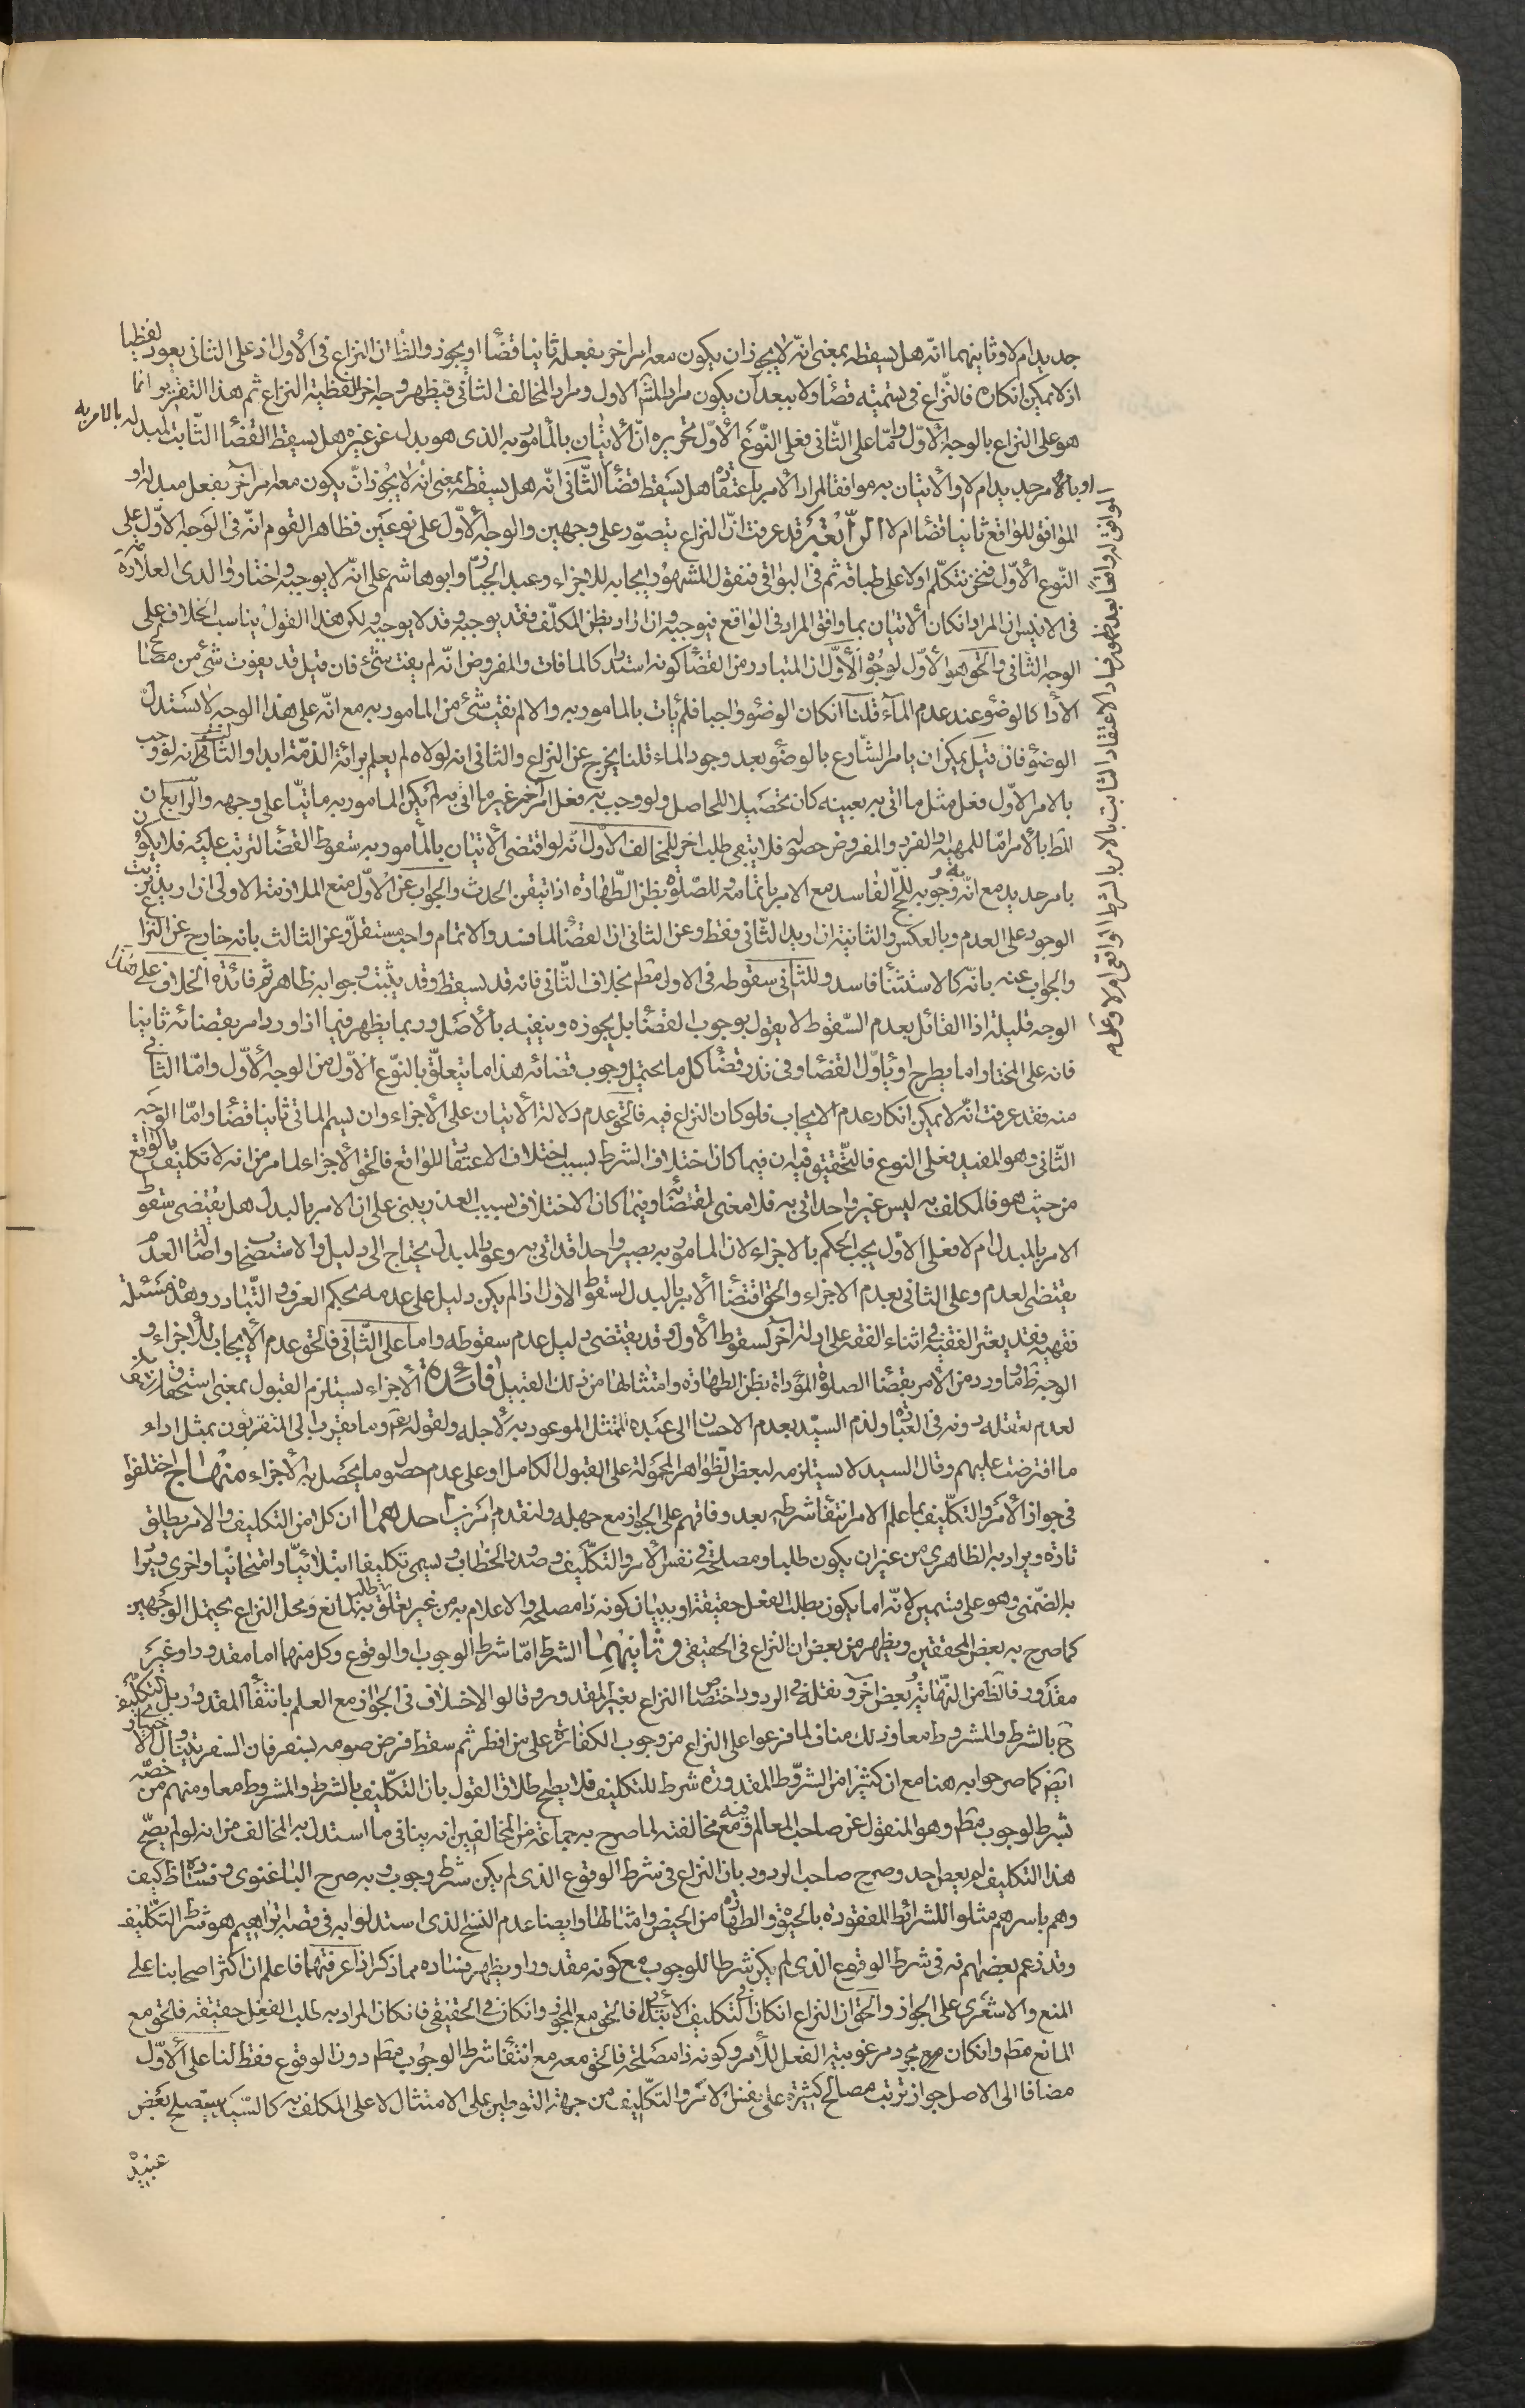 جديد ام لا وثانيهما انّه هل يسقطه بمعنى انّه لا يجوز ان يكون معه امر اخر بفعله ثانيا قضأ او يجوز والظ ان النزاع فى الأول اذ على الثانى يعود لفظيا
اذ لا يمكن انكاره فالنّزاع فى تسميته قضأ ولا يبعد ان يكون مراد المش الاول ومراد المخالف الثانى فيظهر وجه اخر للفظية النزاع ثم هذا التقرير انما
هو على النزاع بالوجه الأوّل وامّا على الثّانى فعلى النّوع الأوّل تحريره انّ الاتيان بالمأمور به الذى هو بدل عن غيره هل يسقط القضأ الثّابت لمبدله بالامر به
او بالأمر جديد ام لا والاتيان به موافقا لمراد الأمر باعتقاده هل يسقط قضأ الثّانى انّه هل يسقطه بمعنى انّه لا يجوز انّ يكون معه امر آخر بفعل مبدله او
الموافق للواقع ثانيا قضأ ام لا قد عرفت انّ النزاع يتصوّر على وجهين والوجه الأوّل على نوعين فظاهر القوم انّه فى الوجه الاوّل على
النّوع الأوّل فنحن نتكلّم اولا على طباقه ثم فى البواقى فنقول المشهور ايجابه للاجزاء وعبد الجبّار وابو هاشم على انّه لا يوجبه واختار والدى العلامة ره
فى الانيس ان المراد انكان الاتيان بما وافق المراد فى الواقع فيوجبه وان اراد بظن المكلّف فقد يوجبه وقد لا يوجبه ولكن هذا القول يناسب الخلاف على
الوجه الثانى والحق هو الأوّل لوجوه الأوّل ان المتبادر من القضأ كونه استدراكا لما فات والمفروض انّه لم يفت شئ فان قيل قد يفوت شئ من مصالح
الأدا كالوضوء عند عدم المآء قلنا انكان الوضوء واجبا فلم يأت بالمامور به والا لم يفت شئ من المامور به مع انّه على هذا الوجه لا تستدل
الوضوء فان قيل يمكن ان يامر الشّارع بالوضوء بعد وجود الماء قلنا يخرج عن النزاع والثانى انه لولاه لم يعلم برائة الذمّة ابدا والثالث انه لو وجب
بالامر الاوّل فعل مثل ما اتى به بعينه كان تحصيلا للحاصل ولو وجب به فعل امر اخر غير ما اتى به لم يكن المامور به ماتيّا على وجهه والرابع ان
المط بالأمر امّا المهية والفرد والمفروض حصوله فلا يبقى طلب اخر للمخالف الأول انّه لو اقتضى الاتيان بالمأمور به سقوط القضأ لترتب عليه فلا يكون
بامر جديد مع انّه وجوبه للحج الفاسد مع الامر باتمامه وللصّلوة بظن الطّهارة اذا تيقن الحدث والجواب عن الاوّل منع الملازمة الاولى ان اريد ترتب
الوجود على العدم وبالعكس والثانية ان اريد الثّانى فقط وعن الثانى ان القضأ لما فسد والاتمام واجب مستقلّ وعن الثالث بانه خارج عن النزاع
والجواب عنه بانّه كالاستثنأ فاسد وللثّانى سقوطه فى الاول مط بخلاف الثّانى فانه قد يسقط وقد يثبت وجوابه ظاهر ثم فائدة الخلاف على هذا
الوجه قليلة اذا القائل بعدم السّقوط لا يقول بوجوب القضأ بل يجوزه وينفيه بالأصل وربما يظهر فيما اذا ورد امر بقضائه ثانيا
فانه على المختار اما يطرح او يأوّل القضأ وفى نذر قضأ كل ما يحتمل وجوب قضائه هذا ما يتعلّق بالنّوع الاوّل من الوجه الأوّل وامّا الثانى
منه فقد عرفت انّه لا يمكن انكار عدم الايجاب فلو كان النزاع فيه فالحق عدم دلالة الاتيان على الأجزاء وان يسم الماتى ثانيا قضأ وامّا الوجه
الثّانى وهو المفيد فعلى النوع فالتّحقيق فيه ان فيما كان اختلاف الشرط بسبب اختلاف الاعتقاد للواقع فالحق الأجزاء لما مر من انه لا تكليف بالواقع
من حيث هو فالمكلف به ليس غير واحد اتى به فلا معنى لقضائه وفيما كان الاختلاف بسبب العذر يبنى على ان الامر بالبدل هل يقتضى سقوط
الامر بالمبدل ام لا فعلى الأول يجب الحكم بالاجزاء لان المامور به يصير واحدا قد اتى به وعود المبدل يحتاج الى دليل والاستصحاب واصالة العدم
يقتضى العدم وعلى الثانى بعدم الاجزاء والحق اقتضأ الامر بالبدل لسقوط الاول اذا لم يكن دليل على عدمه بحكم العرف والتّبادر وهذه مسئلة
فقهية وقد يعثر الفقيه فى اثناء الفقه على ادلة اخر لسقوط الأول وقد يقتضى دليل عدم سقوطه واما على الثّانى فالحق عدم الايجاب للأجزاء و
الوجه ظ وما ورد من الأمر بقضأ الصلوة المؤداة بظن الطهارة وامثالها من ذلك القبيل فائدة الأجزاء يستلزم القبول بمعنى استحقاق
لعدم تعقله دونه فى العبادة ولذم السيّد بعدم الاحسان الى عبده الممتثل الموعود به لأجله ولقوله ع وما يقرب الى المتقربون بمثل اداء
ما افترضت عليهم وقال السيد لا يستلزمه لبعض الظّواهر المحمولة على القبول الكامل او على عدم حصول ما يحصل به الأجزاء منهاج اختلفوا
فى جواز الأمر والتكلّيف بما علم الامر انتفأ شرطه بعد وفاقهم على الجواز مع جهله ولنقدم امرين احدهما ان كلا من التكليف والامر يطلق
تارة ويراد به الظاهرى من غير ان يكون طلبا ومصلحة فى نفس الأمر والتكلّيف وصدور الخطاب ويسمى تكليفا ابتلائيّا وامتحانيّا واخرى ويراد
به الضّمنى وهو على قسمين لانّه اما يكون بطلب الفعل حقيقة او ببيان كونه ذا مصلحة والاعلام به من غير تعلّق طلبه به لمانع ومحل النزاع يحتمل الوجهين
كما صرح به بعض المحققين ويظهر من بعض ان النزاع فى الحقيقى وثانيهما الشرط امّا شرط الوجوب او الوقوع وكل منهما اما مقدور او غير
مقدور فالظ من النهّاية وبعض آخر ونقله فى الردود اختصاص النزاع بغير المقدور وقالوا لا خلاف فى الجواز مع العلم بانتفأ المقدور بل التكليف
ح بالشرط والمشروط معا وذلك مناف لما فرعوا على النزاع من وجوب الكفارة على من افطر ثم سقط فرض صومه بسفر فان السفر
ايض كما صرحوا به هنا مع ان كثيرا من الشرّوط المقدورة شرط للتكليف فلا يصح اطلاق القول بان التكلّيف بالشرط والمشروط معا ومنهم من خصّه
بشرط الوجوب مط وهو المنقول عن صاحب المعالم وفيه مع مخالفته لما صرح به جماعة من المخالفين انه ينافى ما استدل به المخالف من انه لو لم يصح
هذا التكليف لم يعص احد وصرح صاحب الردود بان النزاع فى شرط الوقوع الذى لم يكن شرط وجوب وبه صرح الباغنوى وفساده ظ كيف
وهم باسرهم مثلوا للشرائط المفقودة بالحيوة والطهارة من الحيض وامثالها وايضا عدم النسخ الذى استدلوا به فى قصة ابراهيم هو شرط التكليف
وقد زعم بعضهم انه فى شرط الوقوع الذى لم يكن شرطا للوجوب مع كونه مقدورا ويظهر فساده مما ذكر اذا عرفتهما فاعلم ان اكثر اصحابنا على
المنع والاشعرى على الجواز والحق ان النزاع انكان فى التكليف الابتلائى فالحق مع المجوز وانكان فى الحقيقى فانكان المراد به طلب الفعل حقيقة فالحق مع
المانع مط وانكان مجرد مرغوبية الفعل للأمر وكونه ذا مصلحة فالحق معه مع انتفأ شرط الوجوب مط دون الوقوع فقط لنا على الأوّل
مضافا الى الاصل جواز ترتب مصالح كثيرة على نفس الامر والتكلّيف من جهة التوطين على الامتثال لا على المكلف به كالسّيّد يستصلح بعض
عبيده
الموافق له واقعا بعد ظهور فساد الاعتقاد الثابت بالامر بالشرط الواقعى اولا وعلى